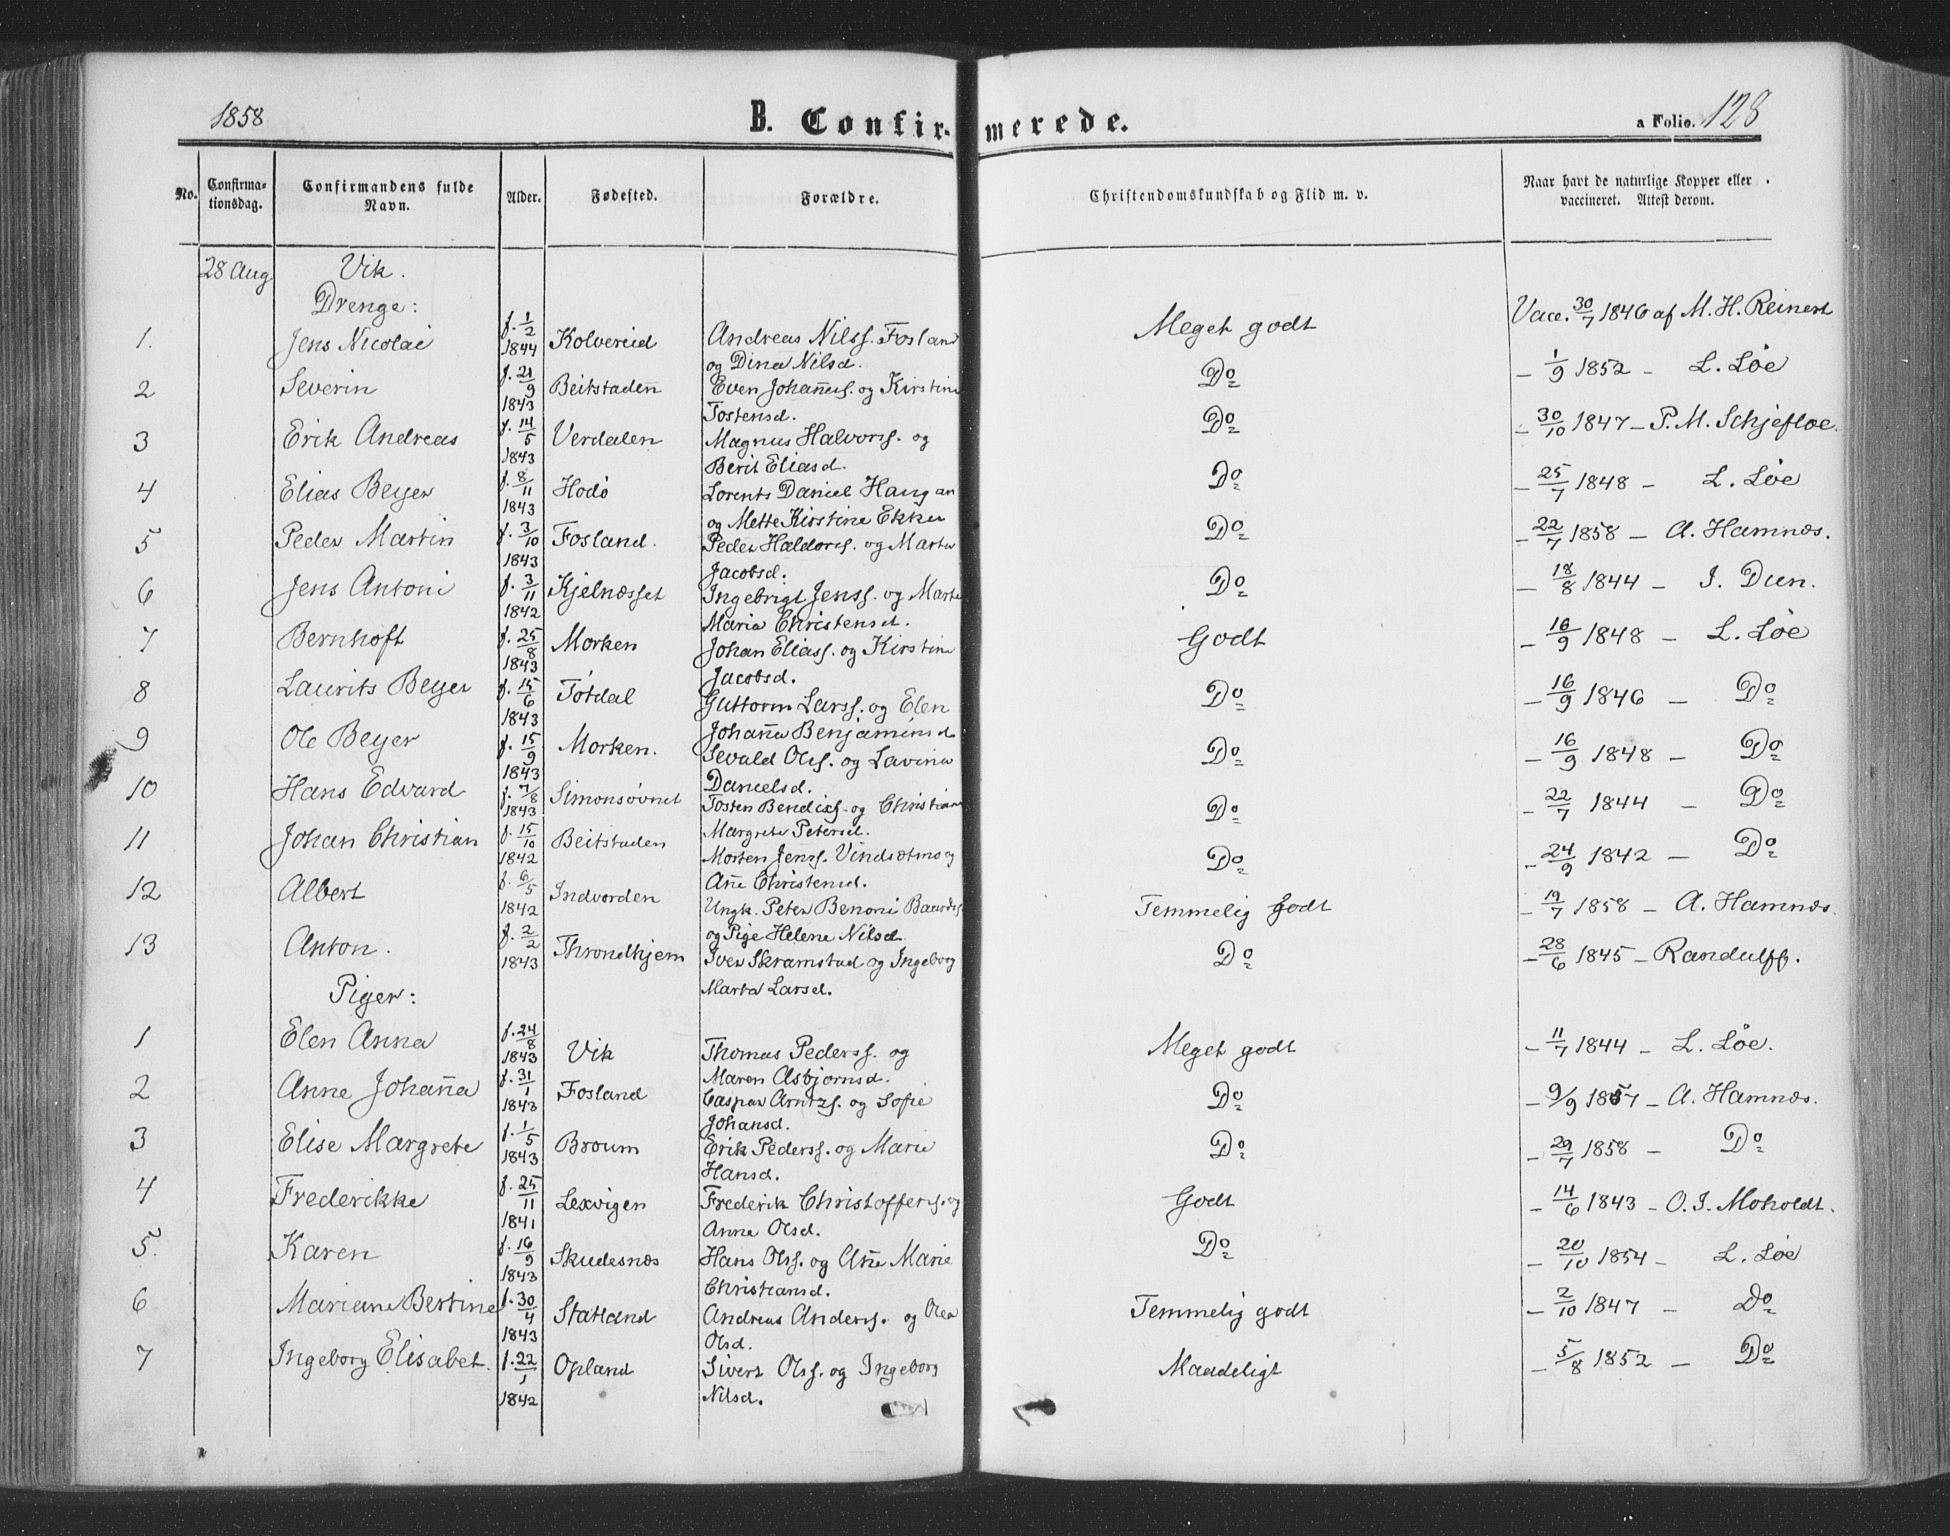 1858
B. Confirmerede.
a Folio. 128
No.
Confirmationsdag.
Confirmandens fulde Navn.
Alder.
Fødested.
Forældre.
Christendomskundskab og Flid m. v.
Naar havt de naturlige Kopper eller vaccineret. Attest derom.
28 Aug. Vik.
Drenge:
1. Jens Nicolai f. 1/2 1844 Kolvereid Andreas Nilss. Fosland og Dina Nilsd. Meget godt Vacc. 30/7 1846 af M. H. Reinert
2 Severin f. 21/9 1843 Beitstaden Even Johan̄ess. og Kirstine Tostensd. Do - 1/9 1852 - L. Løe
3 Erik Andreas f. 14/5 1843 Verdalen Magnus Halvorss. og Berit Eliasd. Do - 30/10 1847 - P. M. Schjefloe.
4 Elias Beyer f. 8/11 1843 Hodø Lorents Daniel Haugan og Mette Kirstine Ekker Do - 25/7 1848 - L. Løe
5 Peder Martin f. 3/10 1843 Fosland. Peder Haldorss. og Marta Jacobsd. Do - 22/7 1858 - A. Hamnæs.
6 Jens Antoni f. 3/11 1842 Kjelnæsset Ingebrigt Jenss. og Marta Maria Christensd. Do - 18/8 1844 - J. Dun.
7 Bernhoft f. 25/8 1843 Morken Johan Eliass. og Kirstine Jacobsd. Godt - 16/9 1848 - L. Løe
8 Laurits Beyer f. 15/6 1843 Tøtdal Guttorm Larss. og Elen Johan̄a Benjaminsd Do - 16/9 1846 - Do
9 Ole Beyer f. 15/9 1843 Morken. Sevald Olss. og Lavina Danielsd. Do - 16/9 1848 - Do
10 Hans Edvard f. 7/8 1843 Simonsøvnet Tosten Bendixs. og Christiana Margrete Petersd. Do - 22/7 1844 - Do
11 Johan Christian f. 15/10 1842 Beitstaden Morten Jenss. Vindsætmo og An̄e Christensd. Do - 24/9 1842 - Do
12 Albert f. 6/5 1842 Indvorden Ungk. Peter Benoni Baurdss. og Pige Helene Nilsd. Temmelig godt - 19/7 1858 - A. Hamnæs.
13 Anton. f. 2/2 1843 Throndhjem Iver Skramstad og Ingeborg Marta Larsd. Do - 28/6 1845 - Randulff.
Piger:
1 Elen Anna f. 24/8 1843 Vik Thomas Pederss. og Maren Asbjørnsd. Meget godt - 11/7 1844 - L. Løe.
2 Anne Johan̄a f. 31/1 1843 Fosland Caspar Arntzs. og Sofie Johansd. Do - 9/9 1857 - A. Hamnæs.
3 Elise Margrete f. 1/5 1843 Broum Erik Pederss. og Marie Hansd. Do - 29/7 1858 - Do
4 Frederikke f. 25/11 1841 Lexvigen Frederik Christoffers. og Anne Olsd. Godt - 14/6 1843 - O. J. Moholdt.
5. Karen f. 16/9 1843 Skudesnæs Hans Olss. og An̄e Marie Christiansd. Do - 20/10 1854 - L. Løe
6 Mariane Bertine f. 30/4 1843 Statland Andreas Anderss. og Olea Olsd. Temmelig godt - 2/10 1847 - Do
7 Ingeborg Elisabet. f. 22/1 1842 Opland Sivert Olss. og Ingeborg Nilsd. Maadeligt - 5/8 1852 - Do